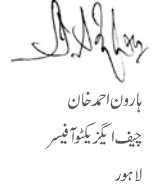 ہارون احمد خان
چیف ایگزیکٹو آفیسر
لاہور